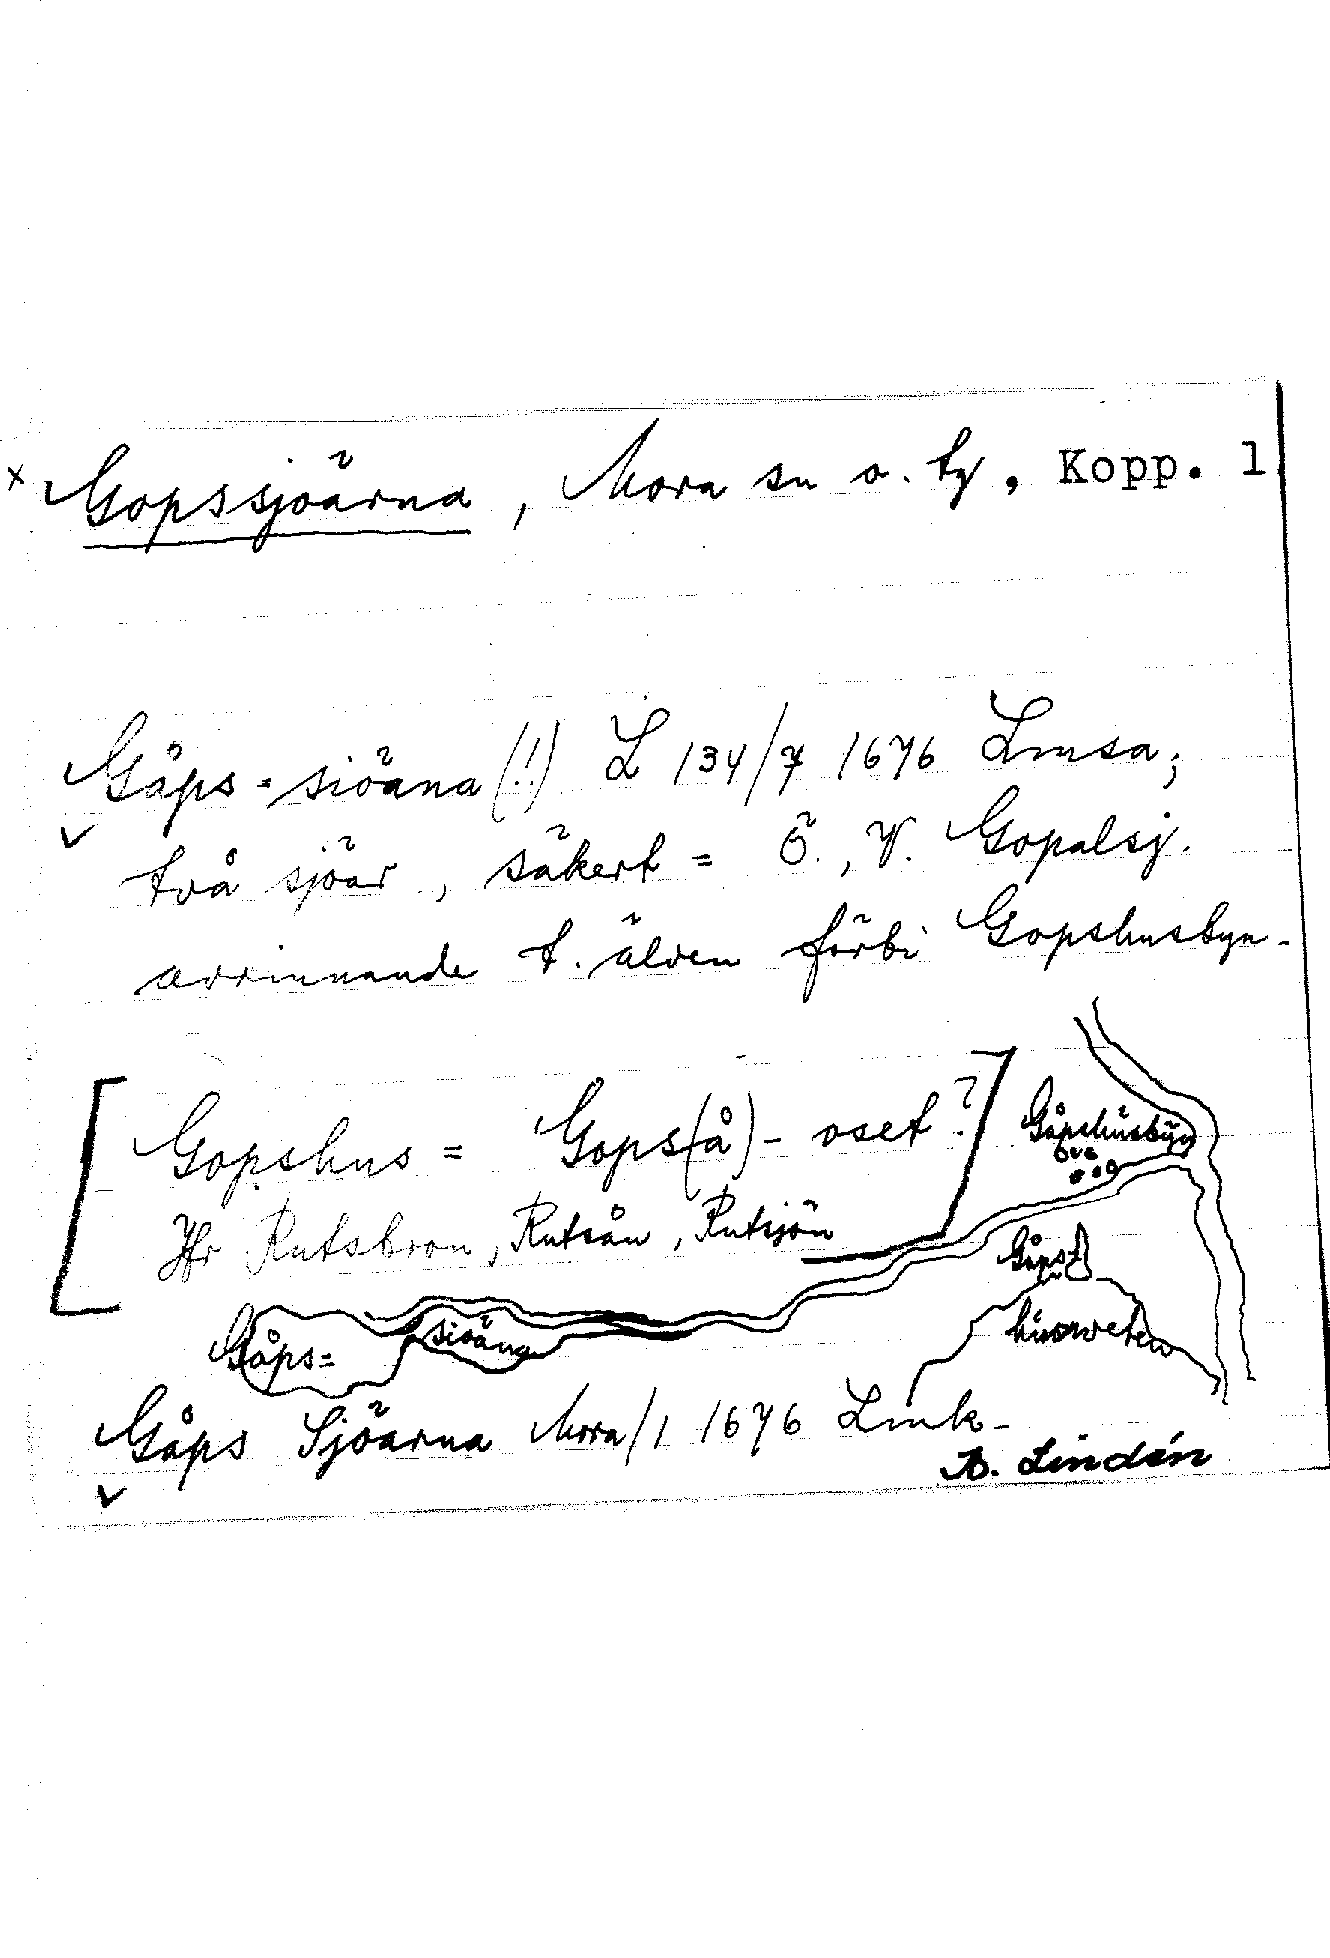 x Gopssjöarna, Mora sn o. tg, Kopp. l
Gåps-siöana (!) L 134/7 1676 Lmsa;
två sjöar, säkert = Ö., V. Gopalsj.
avrinnande t. älven förbi Gopshusbyn.
[Gopshus = Gops(å)-oset?]
Jfr Rutsbron, Rutsån, Rutsjön
Gåpshusbyn
Gåps-
husweten
Gåps= siöana
Gåps Sjöarna Mora/1 1676 Lmk.
B. Lindén